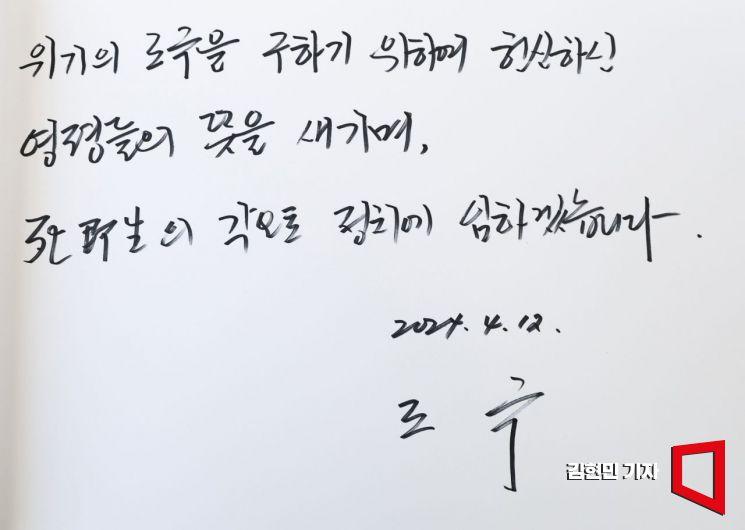 위기의 조국을 구하기 위하여 헌신하신
영령들의 뜻을 새기며,
死卽生의 각오로 정치에 임하겠습니다.
2024. 4. 12.
조 국
김현민 기자